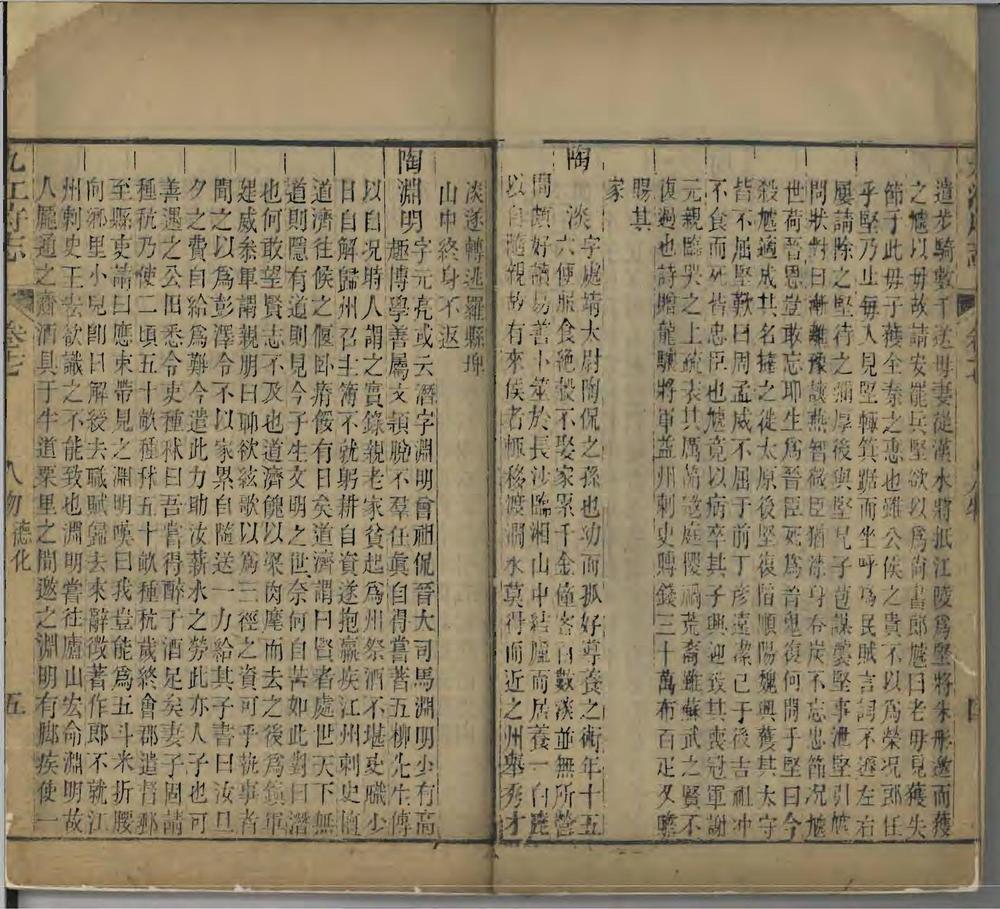 遣步騎數千送母妻從漢水將抵江陵為堅將朱彤邀而獲
之虓以母故請安罷兵堅欲以為尚書郎虓曰老母見獲失
節于此毋子獲全秦之惠也雖公侯之貴不以為榮况郎任
乎堅乃止每入見堅輒箕踞而坐呼為民賊言詞不遜左右
屢請除之堅待之彌厚後與堅兄子苞謀襲堅事泄堅引虓
問狀對曰漸離豫讓燕智微臣猶漆身吞炭不忘忠節况虓
世荷晉恩豈敢忘耶生為晉臣死為晉鬼復何問于堅曰今
殺虓適成其名撻之徙太原後堅復陷順陽魏興獲其大守
皆不屈堅歎曰周孟威不屈于前丁彥遠潔己于後吉祖冲
不食而死皆忠臣也虓竟以病卒其子興迎致其喪冠軍謝
元親臨哭之上疏表其厲節遠庭櫻禍荒裔雖蘇武之賢不
復過也詩贈龍驤將軍益州刺史賻錢三十萬布百疋又贍
賜其
家
陶
淡字處靖大尉陶侃之孫也幼而孤好導養之術年十五
六便服食絶穀不娶家累千金僮客百數淡並無所營
問頗好讀易善卜筮於長沙臨湘山中結廬而居養一白鹿
以自隨親故有來候者輒移渡澗水莫得而近之州舉秀才
九江府志
卷
人物
德化
五
淡遂轉逃羅縣埤
山中終身不返
陶淵明字元亮或云潛字淵明曾祖侃晉大司馬淵明少有高
趣博學善屬文頴脫不羣任真自得嘗著五柳先生傳
以自况時人謂之實錄親老家貧起為州祭酒不堪吏職少
日自解歸州召主簿不就躬耕自資遂抱羸疾江州刺史檀
道濟往候之偃卧瘠餒有日矣道濟謂曰賢者處世天下無
道則隱有道則見今子生文明之世奈何自苦如此對曰潛
也何敢望賢志不及也道濟餽以粱肉麾而去之後為鎮軍
建威叅軍謂親朋曰聊欲絃歌以為三徑之資可乎執事者
聞之以為彭澤令不以家累自隨送一力給其子書曰汝旦
夕之費自給為難今遣此力助汝薪水之勞此亦人子也可
善遇之公田悉令吏種秫曰吾嘗得醉于酒足矣妻子固請
種秔乃使二頃五十畝種秫五十畝種秔歲終會郡遣督郵
至縣吏請曰應束帶見之淵明嘆曰我豈能為五斗米折腰
向鄉里小兒即日解綬去職賦歸去來辭徵著作郎不就江
州刺史王宏欲識之不能致也淵明嘗往廬山宏命淵明故
人龎通之齎酒具于半道栗里之間邀之淵明有脚疾使一